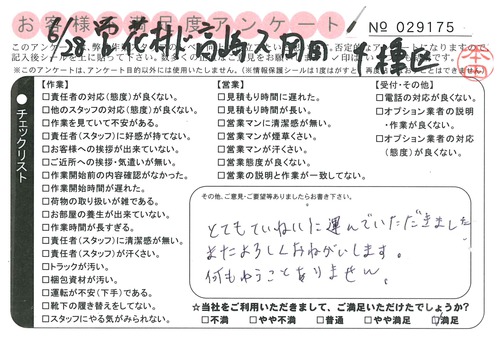 お客様満足度アンケート
No 029175
6/28
千種区
このアンケートは、弊
記入後シールを上に貼って下さい。
(※このアンケートは、アンケート目的以外には使用いたしません。)(※情報保護シールは1度はがすと、再度
【作業】
□責任者の対応(態度)が良くない。
□他のスタッフの対応(態度)が良くない。
□作業を見ていて不安がある。
□責任者(スタッフ)に好感が持てない。
□お客様への挨拶が出来ていない。
□ご近所への挨拶・気遣いが無い。
□作業開始前の内容確認がなかった。
□作業開始時間が遅れた。
□荷物の取り扱いが雑である。
□お部屋の養生が出来ていない。
□作業時間が長すぎる。
□責任者(スタッフ)に清潔感が無い。
□責任者(スタッフ)が汗くさい。
□トラックが汚い。
□梱包資材が汚い。
□運転が不安(下手)である。
□靴下の履き替えをしてない。
□スタッフにやる気がみられない。
【営業】
□見積もり時間に遅れた。
□見積もり時間が長い。
□営業マンに清潔感が無い。
□営業マンが煙草くさい。
□営業マンが汗くさい。
□営業態度が良くない。
□営業の説明と作業が一致してない。
【受付・その他】
□電話の対応が良くない。
□オプション業者の説明
・作業が良くない。
□オプション業者の対応
(態度)が良くない。
チェックリスト
その他、ご意見・ご要望等ありましたらお書き下さい。
とてもていねいに運んでいただきました
またよろしくおねがいします。
何もゆうことありません。
☆当社をご利用いただきまして、ご満足いただけたでしょうか?
□不満 □やや不満 □普通 □やや満足 □満足